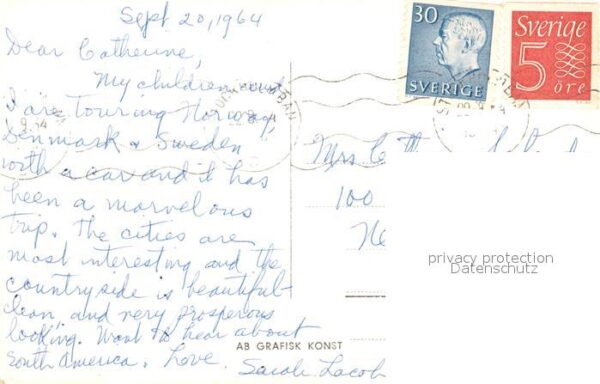 Sept 20, 1964
Dear Catherine,
My children and
I are Touring Norway,
Denmark & Sweden
with a car and it has
been a marvelous
trip. The cities are
most interesting and the
countryside is beautiful-
clean and very prosperous
looking. Want to hear about
South America. Love.
Sarah
30
SVERIGE
Sverige
5
öre
Mrs.
100
Ne
privacy protection
Datenschutz
AB GRAFISK KONST